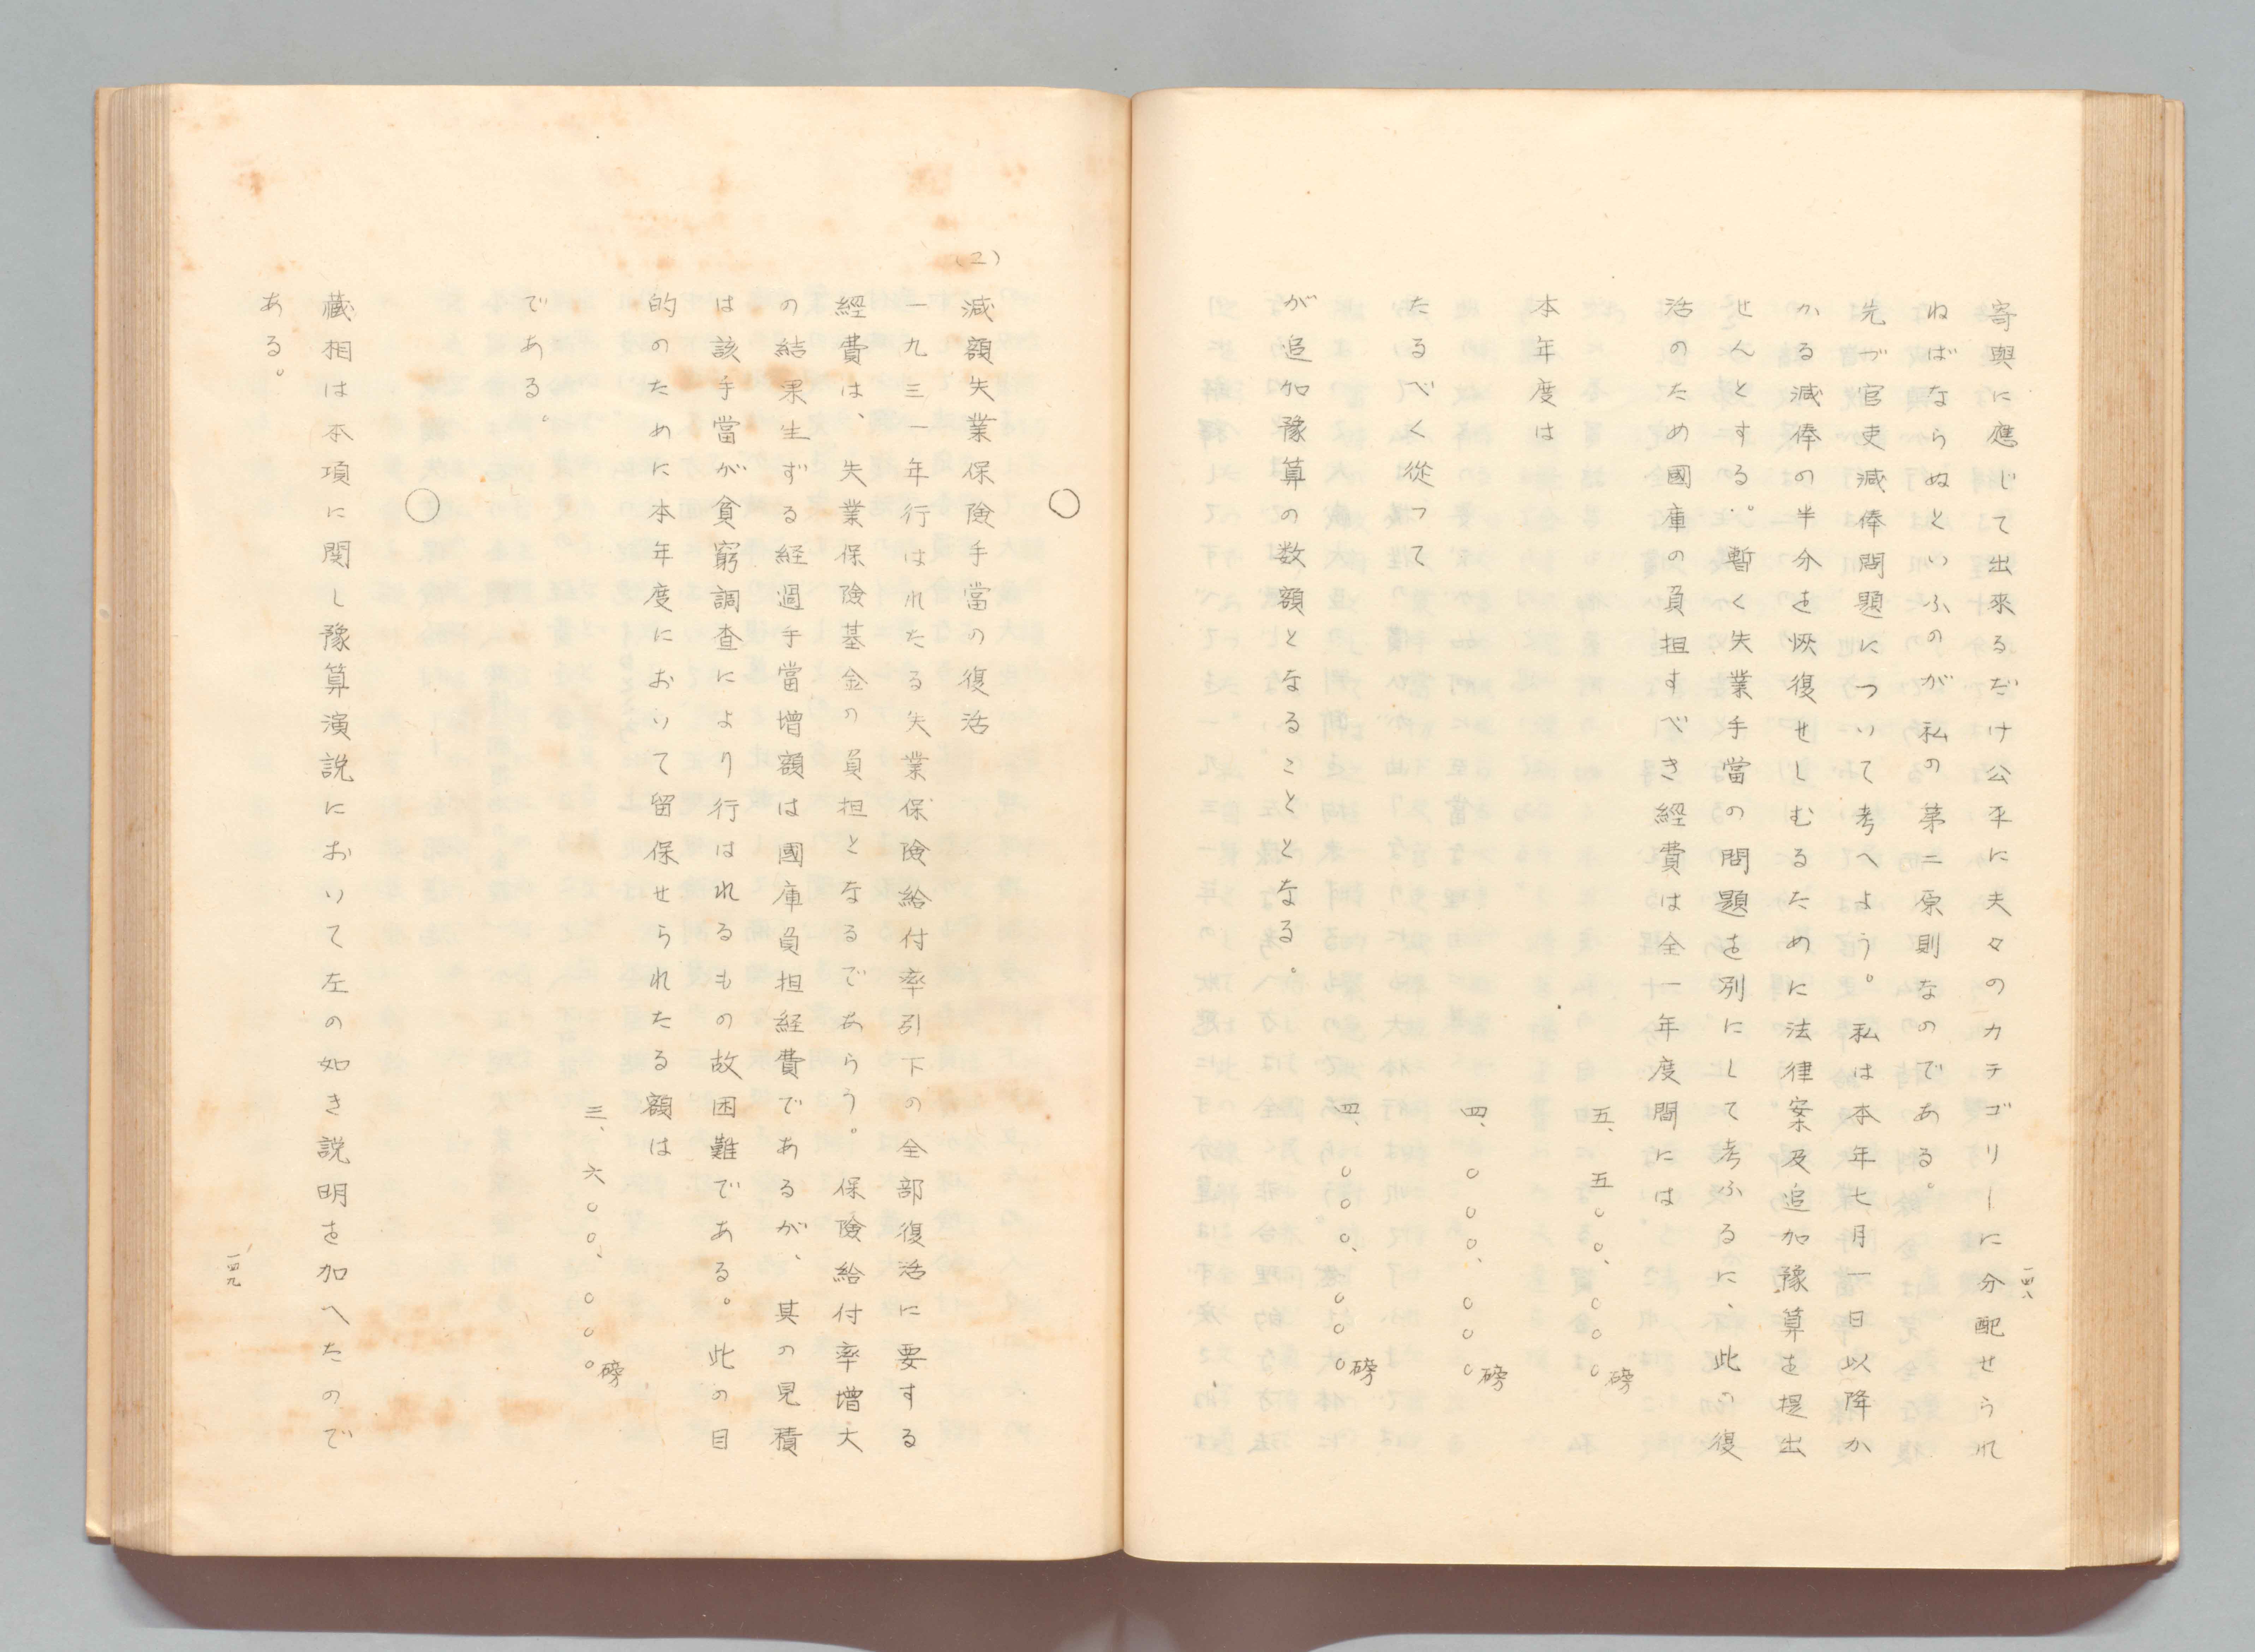 一四八
寄與に應じて出來るだけ公平に夫々のカテゴリーに分配せられ
ねばならぬといふのが私の第二原則なのである。
先づ官吏減俸問題について考へよう。私は本年七月一日以降か
かる減俸の半分を恢復せしむるために法律案及追加豫算を提出
せんとする。暫く失業手當の問題を別にして考ふるに、此の復
活のため國庫の負担すべき經費は全一年度間には
五、五〇〇、〇〇〇磅
本年度は
四、〇〇〇、〇〇〇磅
たるべく從つて
四、〇〇〇、〇〇〇磅
が追加豫算の数額となることとなる。
○
(2)
減額失業保險手當の復活
一九三一年行はれたる失業保險給付率引下の全部復活に要する
經費は、失業保險基金の負担となるであらう。保險給付率増大
の結果生ずる経過手當増額は國庫負担経費であるが、其の見積
は該手當が貧窮調査により行はれるもの故困難である。此の目
的のために本年度において留保せられたる額は
三、六〇〇、〇〇〇磅
である。
○
藏相は本項に関し豫算演説において左の如き説明を加へたので
ある。
一四九